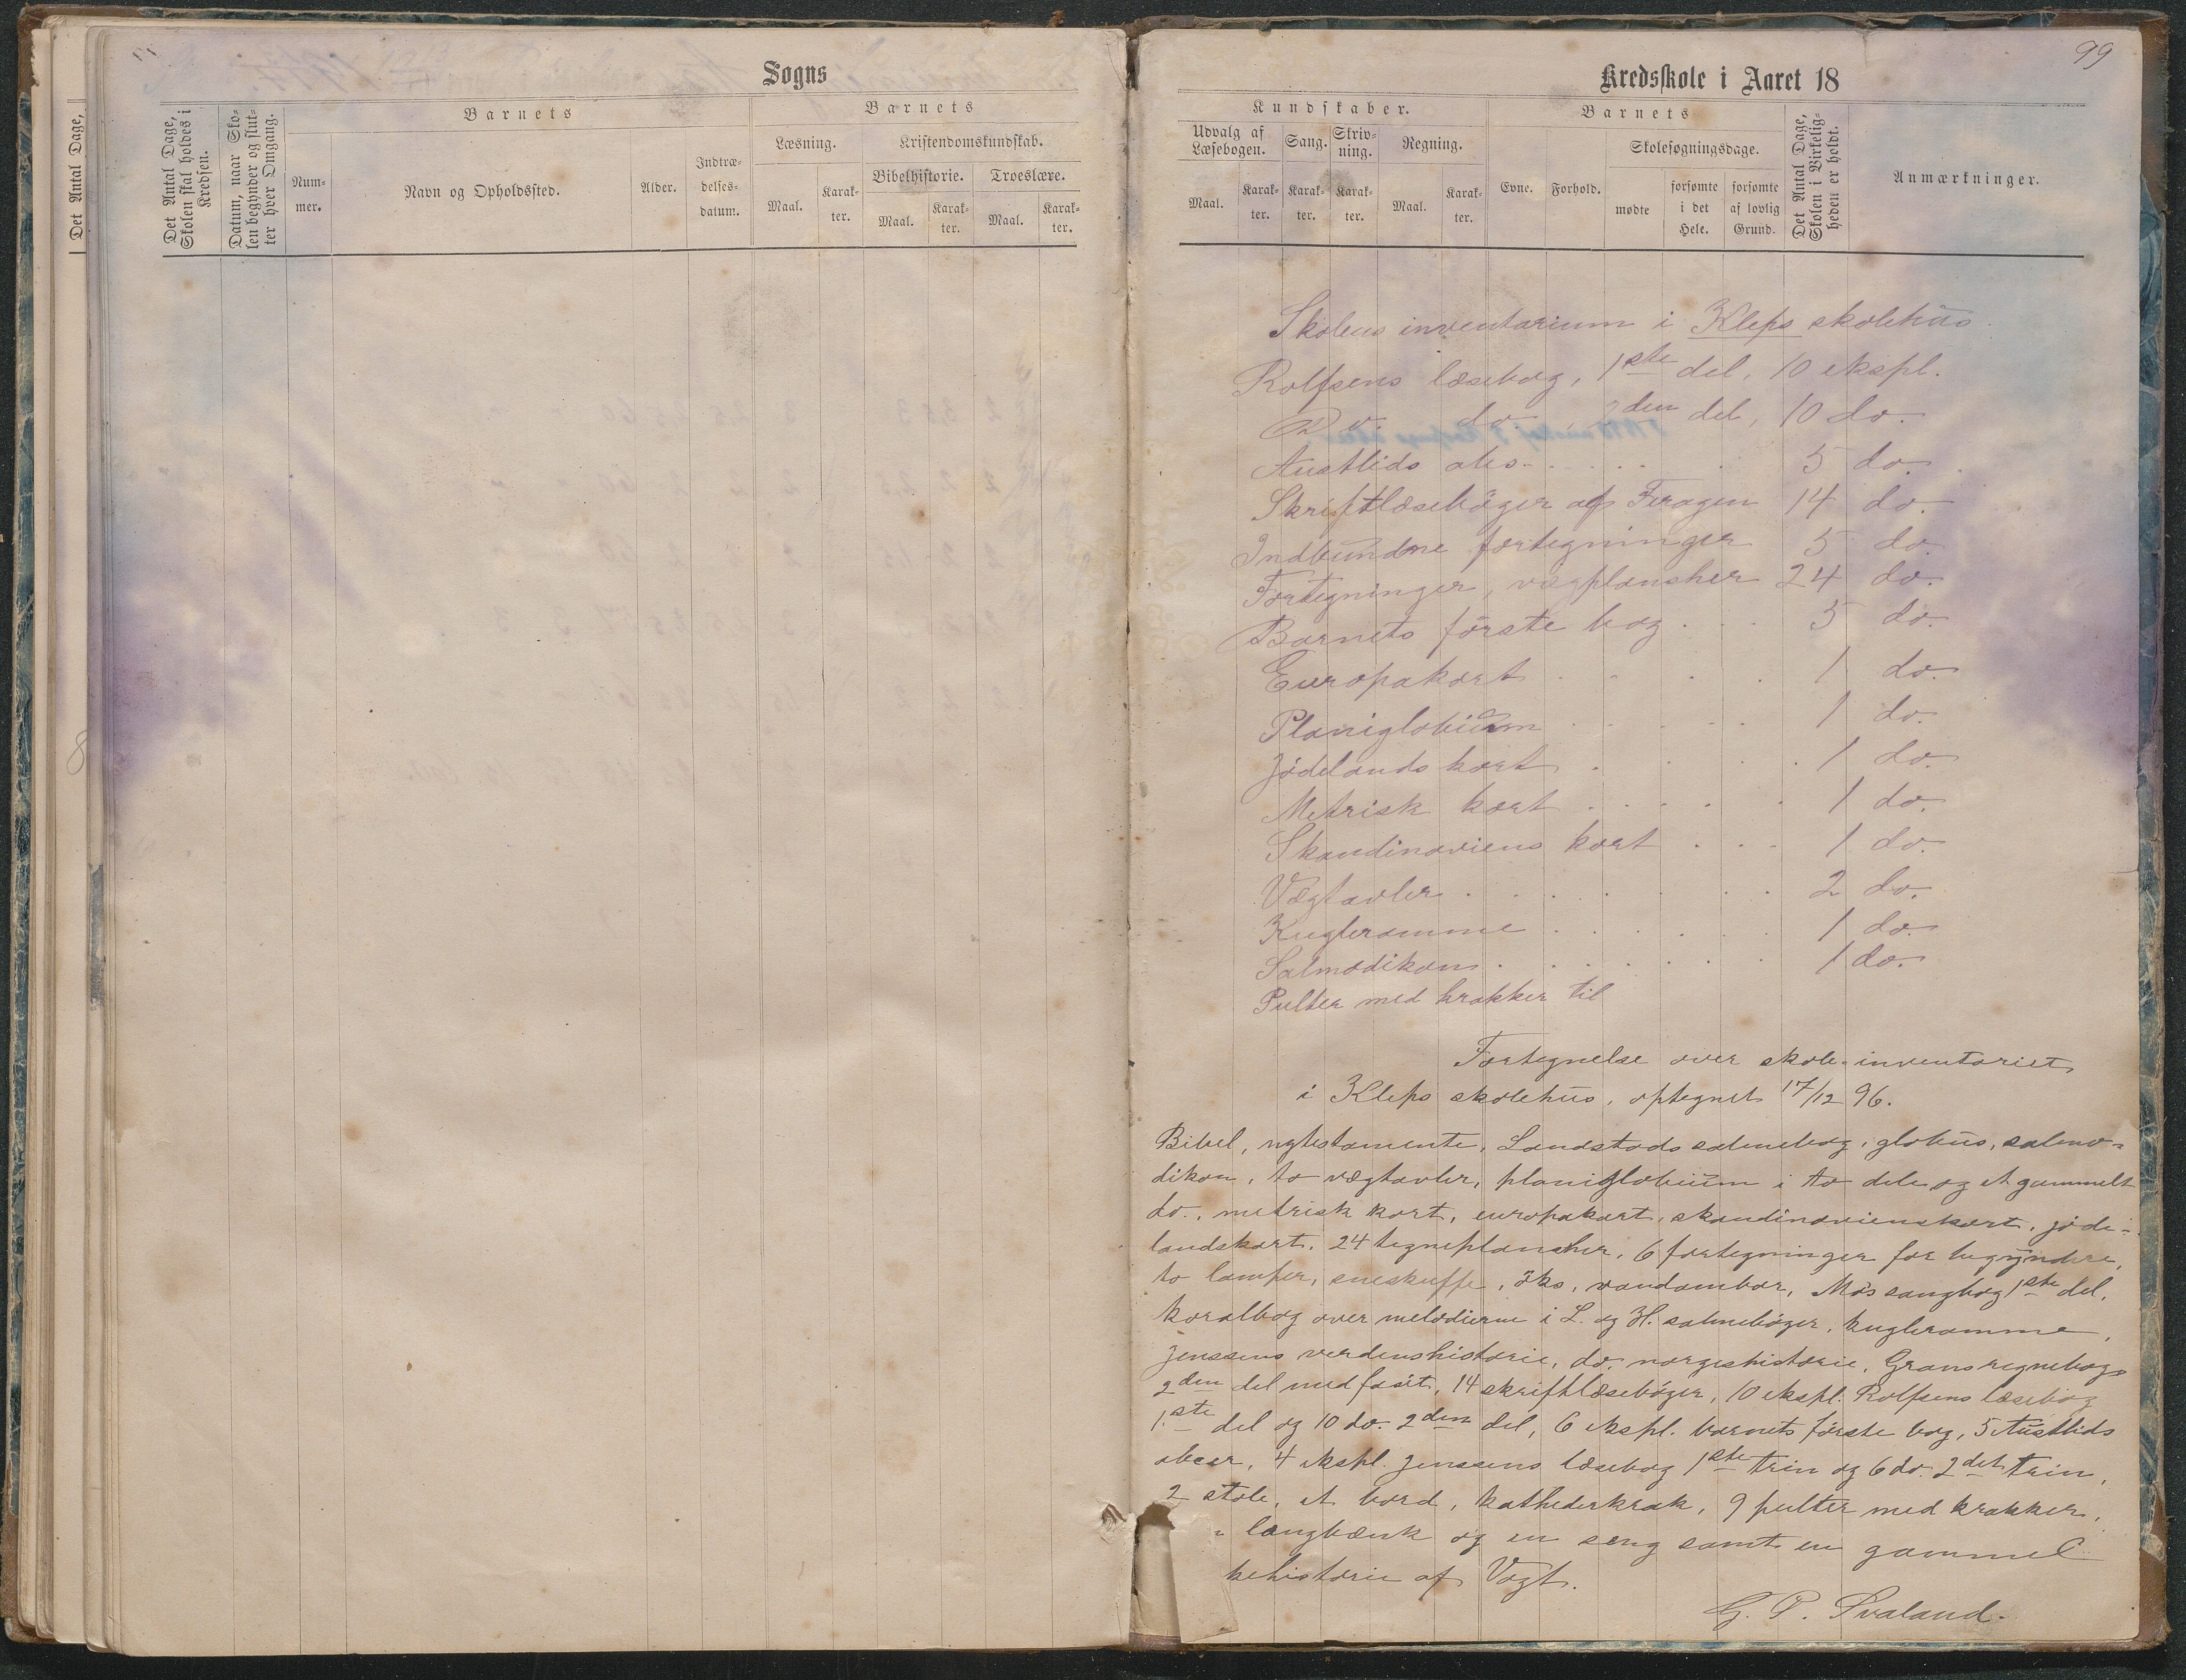 Sogns
Det Antal Dage,
Det Antal Dage, Skolen skal holdes i Kredsen.
Datum, naar Skolen begynder og slutter hver Omgang.
Barnets
Nummer.
Navn og Opholdssted.
Alder.
Indtrædelsesdatum.
Barnets
Læsning.
Kristendomskundskab.
Maal.
Karakter.
Bibelhistorie.
Troeslære.
Maal.
Karakter.
Maal.
Karakter.
8
99
Kredsskole i Aaret 18
Kundskaber.
Udvalg af Læsebogen.
Sang.
Skrivning.
Regning.
Maal.
Karakter.
Karakter.
Karakter.
Maal.
Karakter.
Barnets
Evne.
Forhold.
Skolesøgningsdage.
mødte
forsømte i det Hele.
forsømte af lovlig Grund.
Det Antal Dage, Skolen i Virkeligheden er holdt.
Anmærkninger.
Skolens inventarium i Kleps skolehus
Rolfsens læsebog, 1ste del, 10 ekspl.
Do. do 2den del, 10 do.
Austlids abs. 5 do.
Skriftlæsebøger af Feragen 14 do.
Indbundne fortegninger 5 do.
Fortegninger, vægplansher 24 do.
Barnets første bog 5 do.
Europakort 1 do.
Planiglobium 1 do.
Jødelands kort 1 do.
Metrisk kort 1 do.
Skandinaviens kort 1 do.
Vægtavler 2 do.
Kugleramme 1 do.
Salmodikon 1 do.
Pulter med krakker til
Fortegnelse over skole-inventariet
i Kleps skolehus, optegnet 17/12 96.
Bibel, nytestamente, Landstads salmebog, globus, salmo-
dikon, to vægtavler, planiglobium i to dele og et gammelt
do., metrisk kort, europakart, skandinavienskart, jøde-
landskart, 24 tegneplansher, 6 fortegninger for begyndere,
to lamper, sneskuffe, øks, vandambar, Mós sangbog 1ste del,
koralbog over melodierne i L. og H. salmebøger, kugleramme,
Jenssens verdenshistorie, do. norgeshistorie, Grans regnebog
2den del med fasit, 14 skriftlæsebøger, 10 ekspl. Rolfsens læsebog
1.ste del og 10 do. 2den del, 6 ekspl. barnets første bog, 5 Austlids
abcer, 4 ekspl. Jenssens læsebog 1ste trin og 6 do. 2det trin,
2 stole, et bord, kathederkrak, 9 pulter med krakker,
langbænk og en seng samt en gammel
kehistorie af Vogt.
G. P. Svaland.